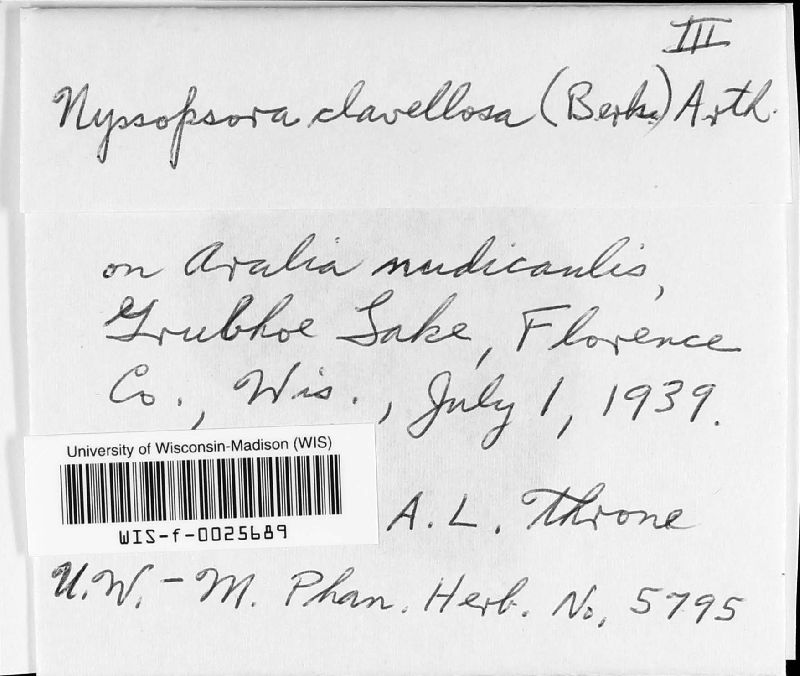 III
Nyssopsora clavellosa (Berk.) Arth.
on Aralia nudicaulis,
Grubhoe Lake, Florence
Co., Wis., July 1, 1939.
University of Wisconsin-Madison (WIS)
WIS-f-0025689
A. L. Throne
U.W.-M. Phan. Herb. No, 5795